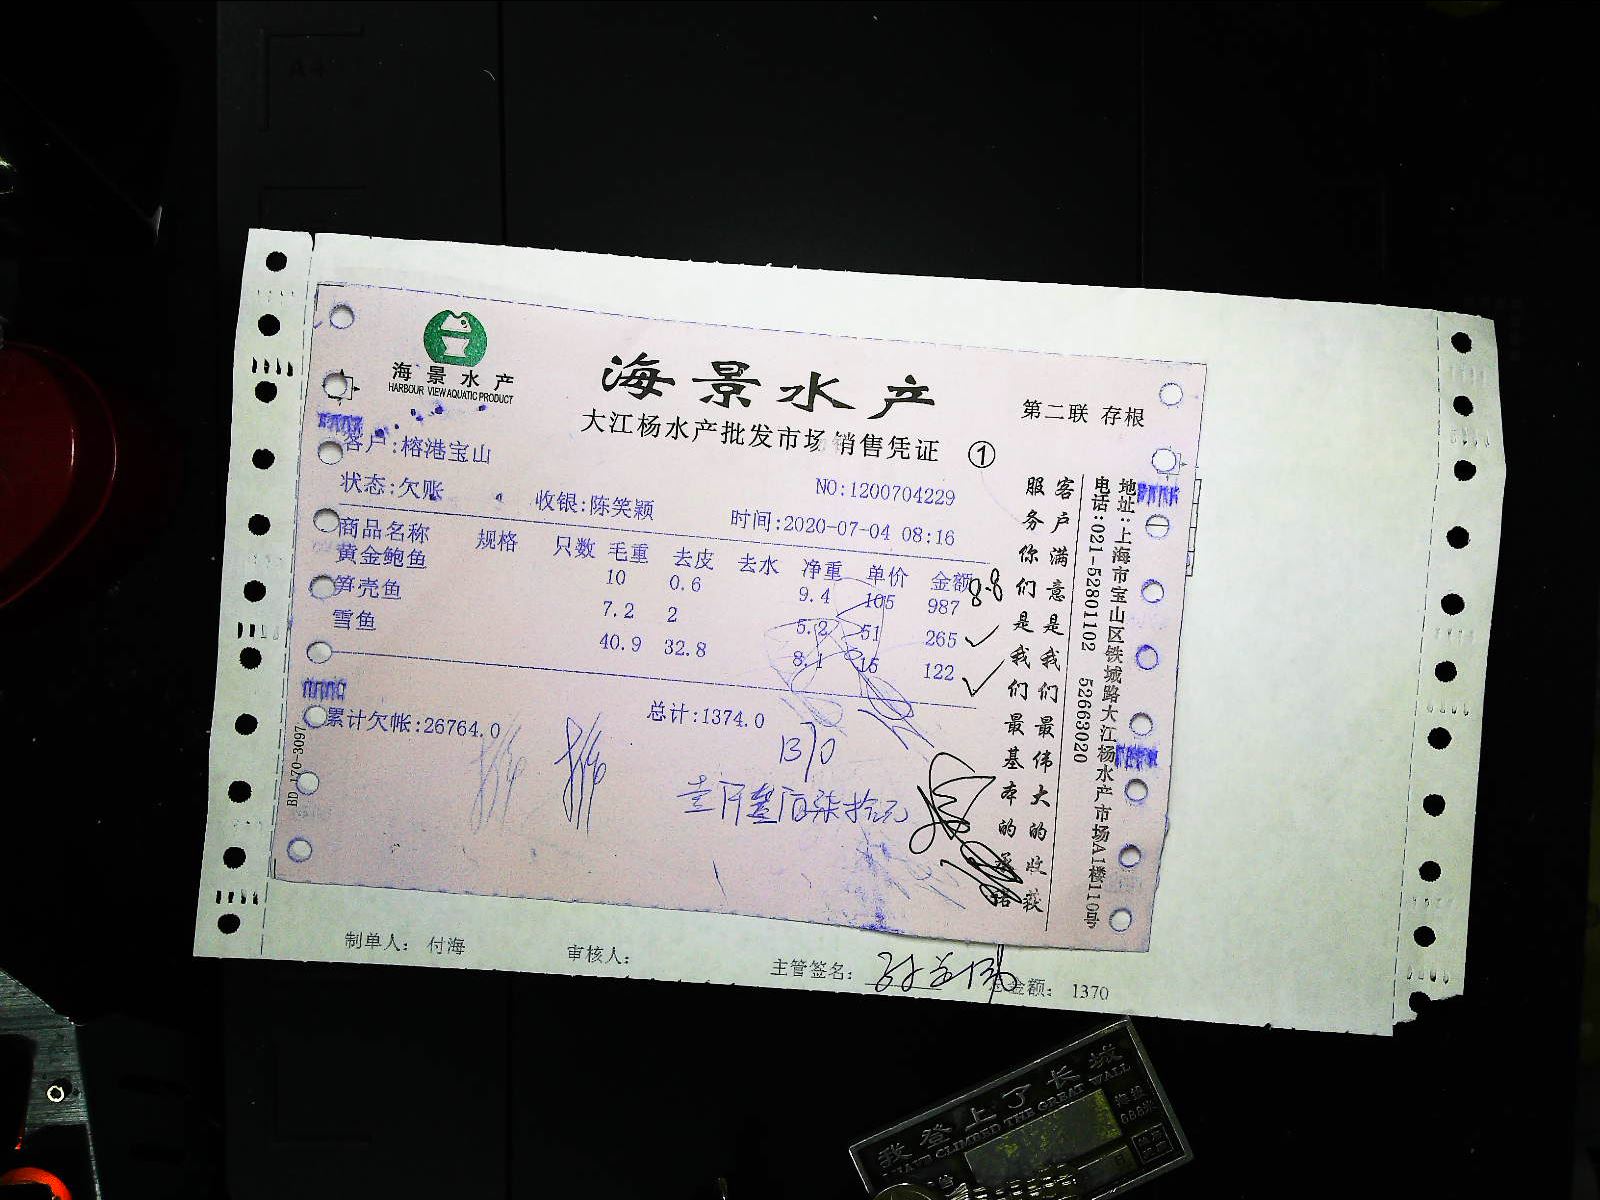 海景水产
HARBOUR VIEW AQUATIC PRODUCT
海景水产
大江杨水产批发市场销售凭证 ①
第二联 存根
客户:榕港宝山
状态:欠账 收银:陈笑颖 NO:1200704229
时间:2020-07-04 08:16
商品名称 规格 只数 毛重 去皮 去水 净重 单价 金额
黄金鲍鱼 10 0.6 9.4 105 987
8.8
笋壳鱼 7.2 2 5.2 51 265
雪鱼 40.9 32.8 8.1 15 122
累计欠帐:26764.0 总计:1374.0
1370
壹仟叁佰柒拾元
客户满意是我们最伟大的收获
服务你们是我们最基本的承诺
地址:上海市宝山区铁城路大江杨水产市场A1楼110号
电话:021-52801102 52663020
BD 170-3097
制单人: 付海 审核人: 主管签名: 总金额: 1370
我登上了长城
I HAVE CLIMBED THE GREAT WALL